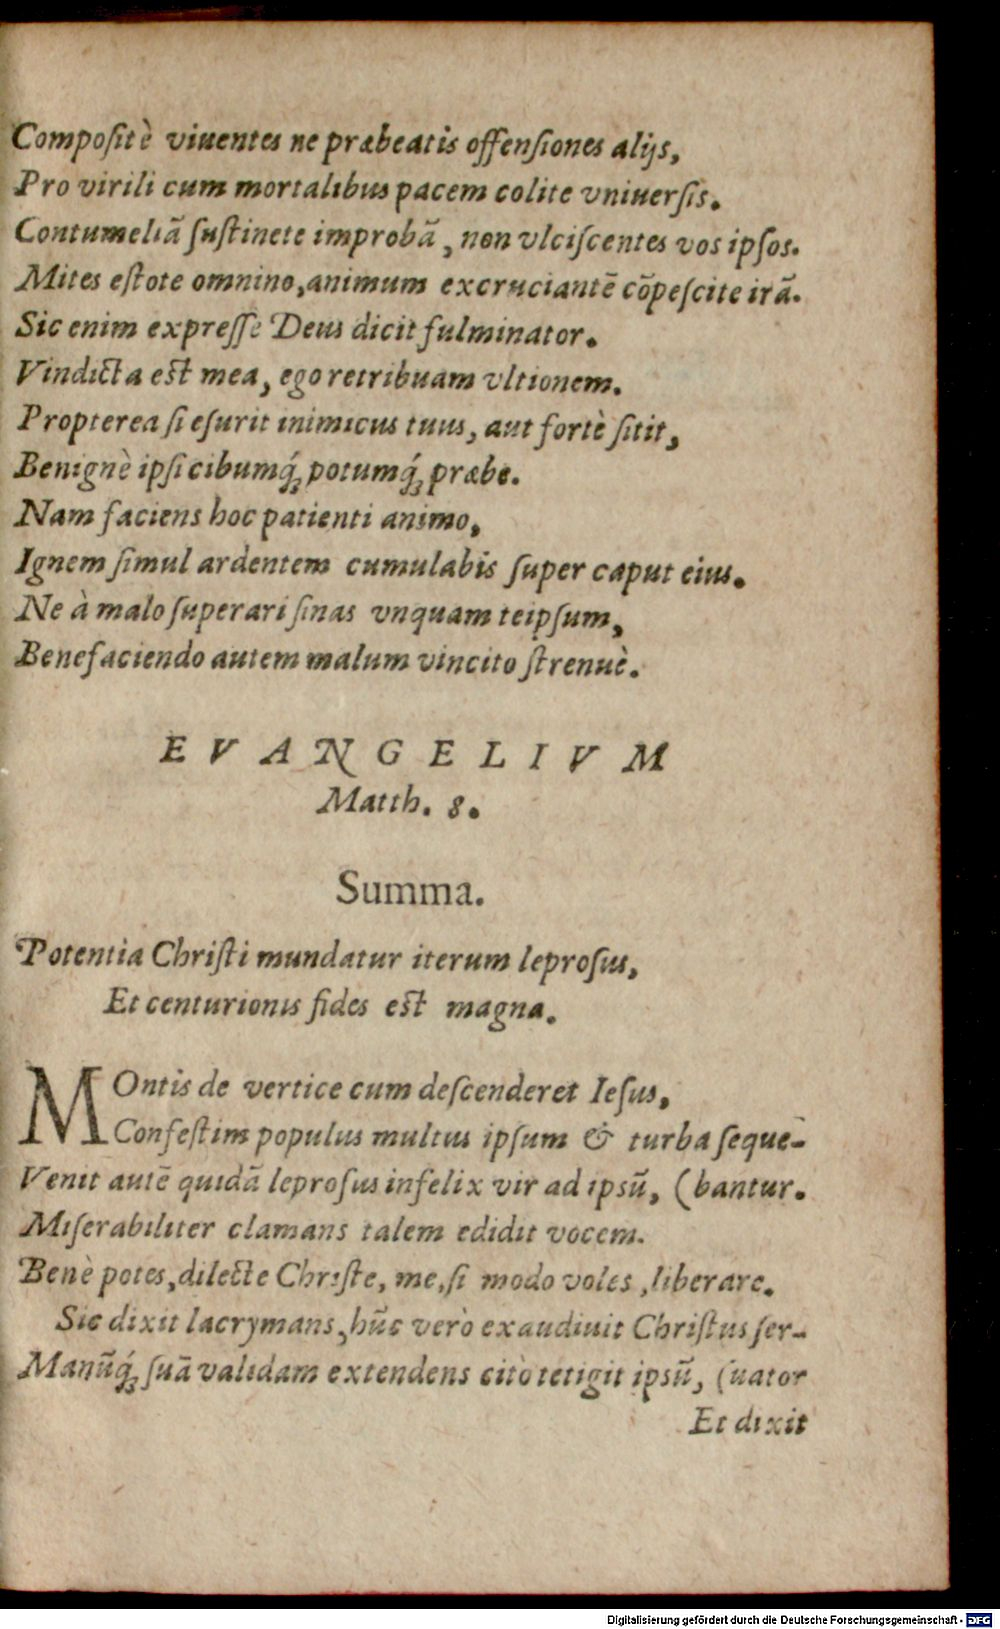 Compoſitè viuentes ne præbeatis offenſiones alijs,
Pro virili cum mortalibus pacem colite vniuerſis.
Contumeliã ſuſtinete improbã, non vlciſcentes vos ipſos.
Mites eſtote omnino, animum excruciantẽ cõpeſcite irã.
Sic enim expreſſe Deus dicit fulminator.
Vindicta est mea, ego retribuam vltionem.
Propterea ſi eſurit inimicus tuus, aut fortè ſitit,
Benignè ipſi cibumq́; potumq́; præbe.
Nam faciens hoc patienti animo,
Ignem ſimul ardentem cumulabis ſuper caput eius.
Ne à malo ſuperari ſinas vnquam teipſum,
Benefaciendo autem malum vincito ſtrenuè.
EVANGELIVM
Matth. 8.
Summa.
Potentia Chriſti mundatur iterum leproſus,
Et centurionis fides est magna.
MOntis de vertice cum deſcenderet Ieſus,
Confeſtim populus multus ipſum & turba ſequē-
Venit autẽ quidã leproſus infelix vir ad ipsũ, (bantur.
Miſerabiliter clamans talem edidit vocem.
Benè potes, dilecte Chriſte, me, ſi modo voles, liberare.
Sic dixit lacrymans, hũc verò exaudiuit Chriſtus ſer-
Manũq́; ſuã validam extendens citò tetigit ipsũ, (uator
Et dixit
Digitalisierung gefördert durch die Deutsche Forschungsgemeinschaft - DFG